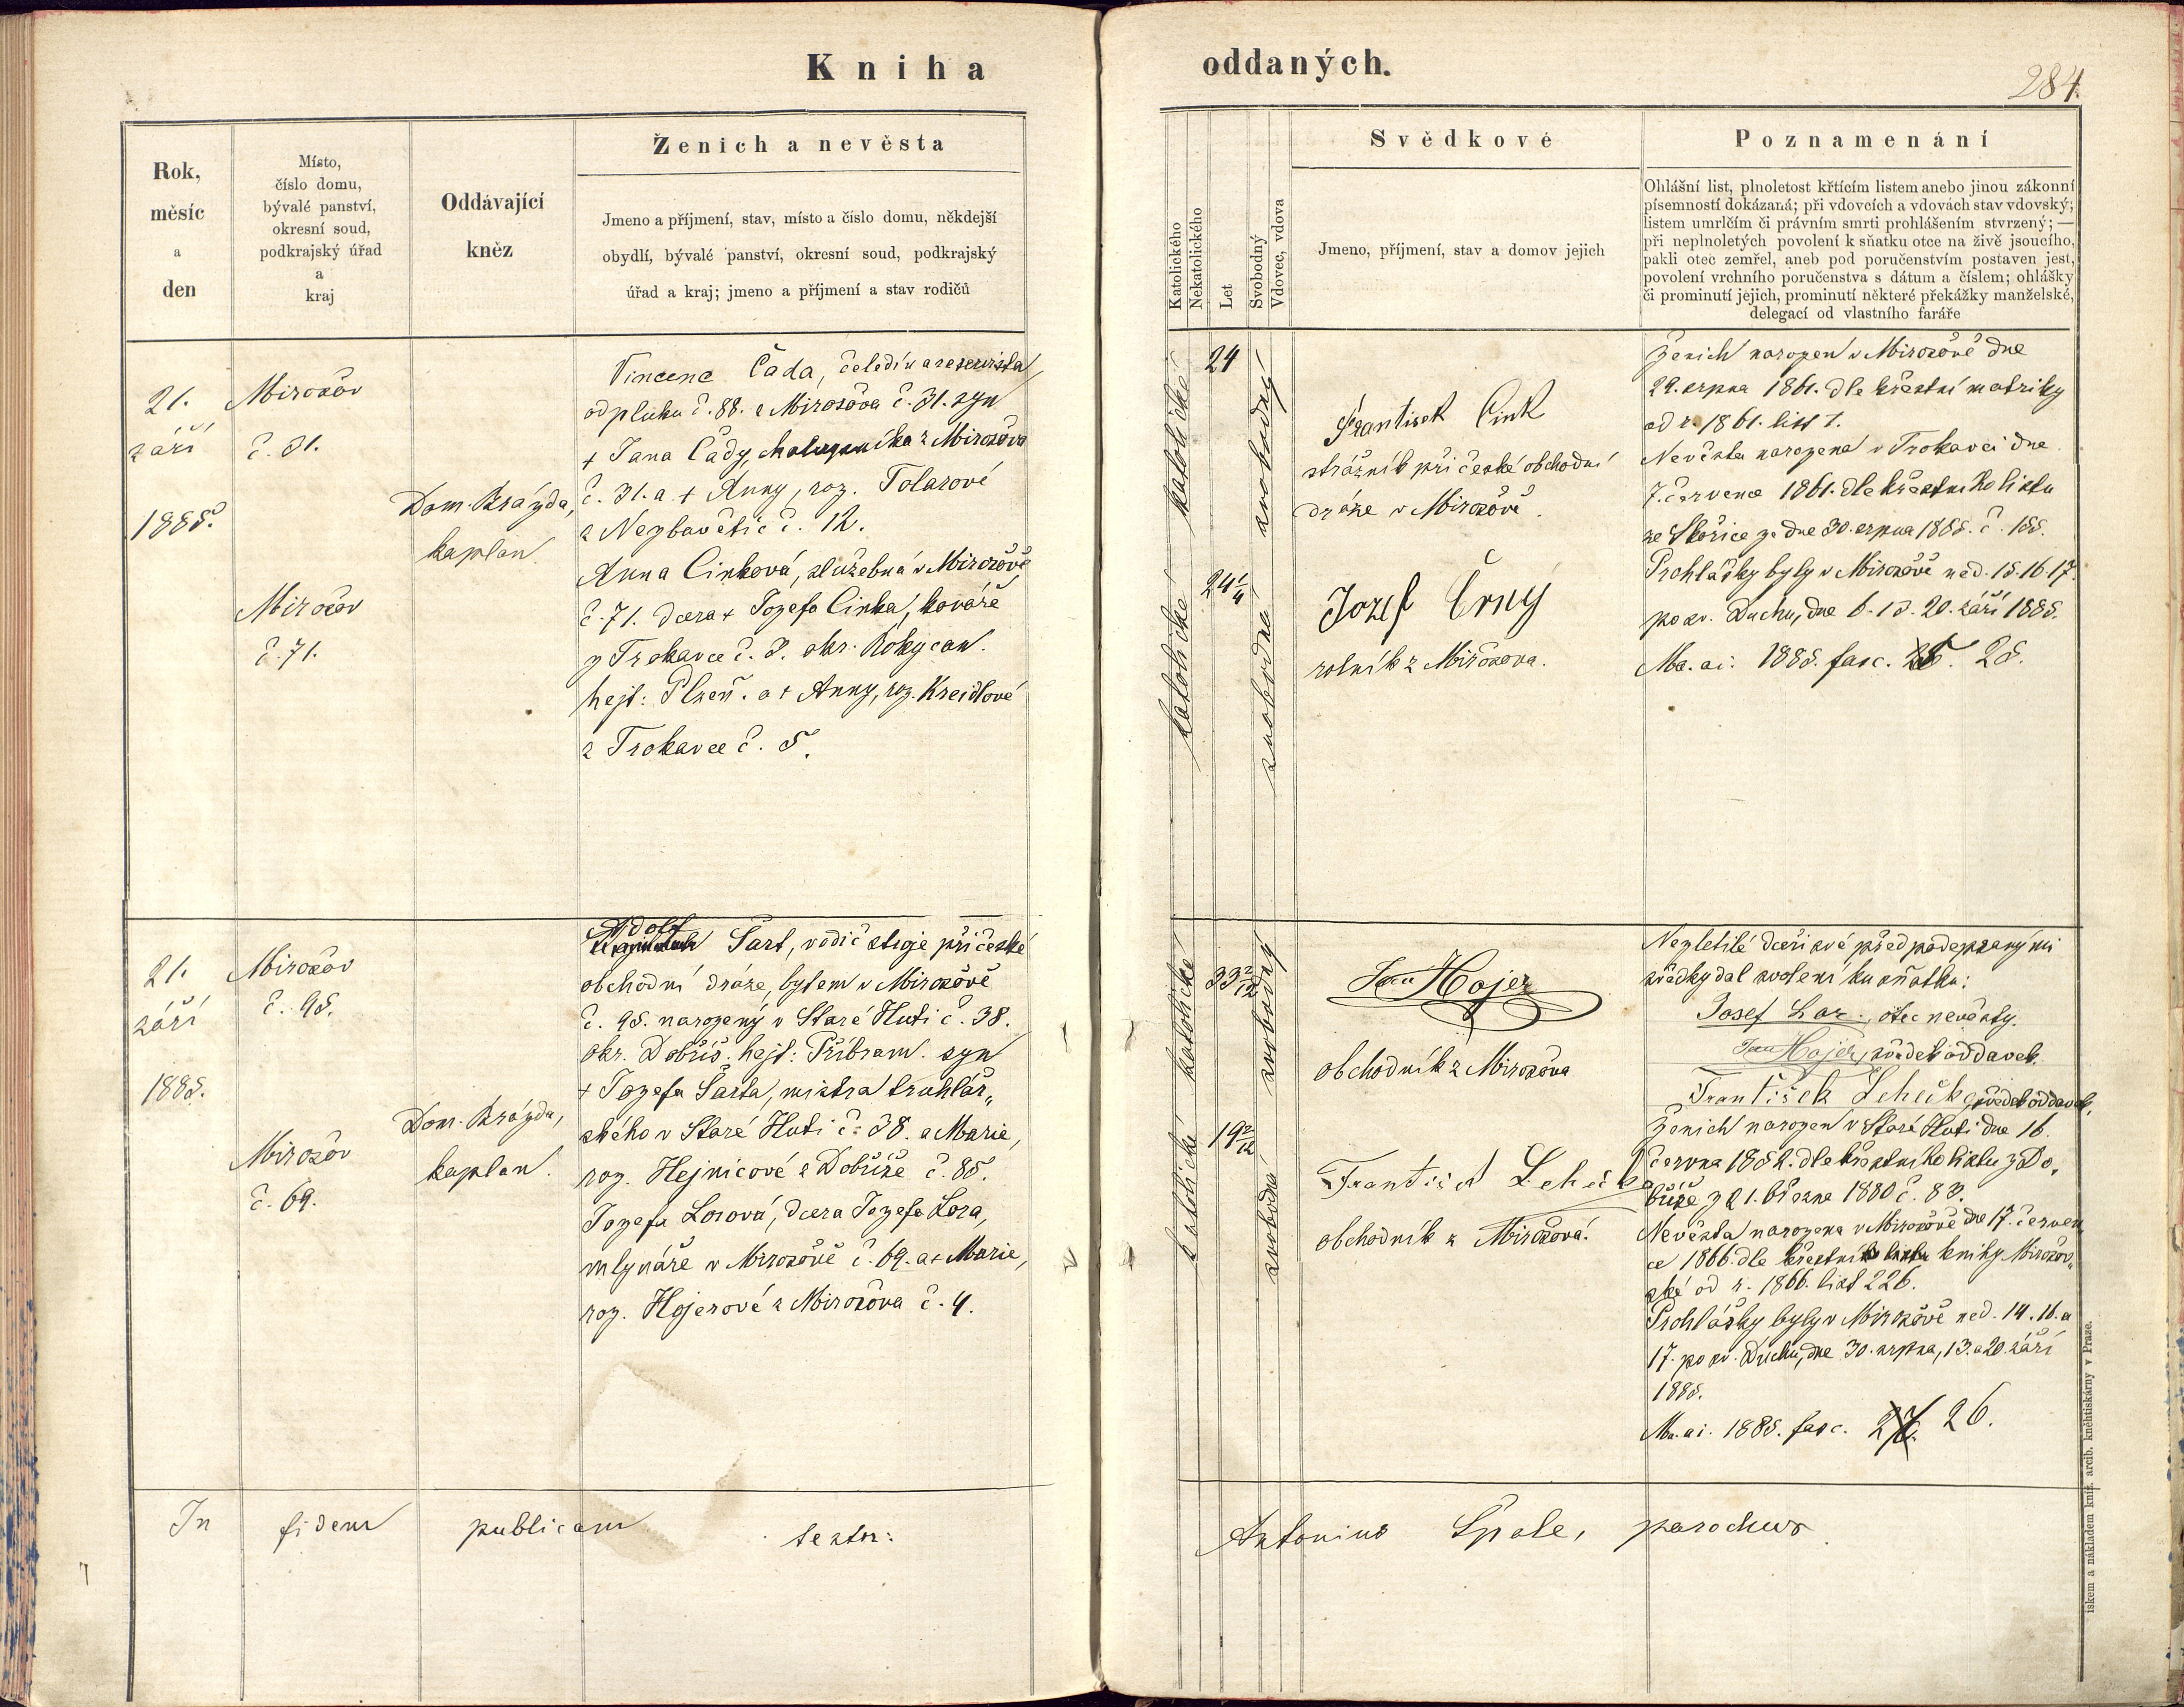 Kniha oddaných.
284.
Rok,
měsíc
a
den
Místo,
číslo domu,
bývalé panství,
okresní soud,
podkrajský úřad
a
kraj
Oddávající
kněz
Ženich a nevěsta
Jmeno a příjmení, stav, místo a číslo domu, někdejší
obydlí, bývalé panství, okresní soud, podkrajský
úřad a kraj; jmeno a příjmení a stav rodičů
Katolického
Nekatolického
Let
Svobodný
Vdovec, vdova
Svědkové
Jmeno, příjmení, stav a domov jejich
Poznamenání
Ohlášní list, plnoletost křtícím listem anebo jinou zákonní
písemností dokázaná; při vdovcích a vdovách stav vdovský;
listem umrlčím či právním smrti prohlášením stvrzený; —
při neplnoletých povolení k sňatku otce na živě jsoucího,
pakli otec zemřel, aneb pod poručenstvím postaven jest,
povolení vrchního poručenstva s dátum a číslem; ohlášky
či prominutí jejich, prominutí některé překážky manželské,
delegací od vlastního faráře
21.
září
1885.
Mirošov
č. 31.
Mirošov
č. 71.
Dom. Brázda,
kaplan.
Vincenc Čada, čeledín a reservista
od pluku č. 88. z Mirošova č. 31. syn
+ Jana Čady, z Mirošova
č. 31. a + Anny, roz. Tolarové
z Nezbavětic č. 12.
Anna Cinková, služebná v Mirošově
č. 71. dcera + Jozefa Cinka, kováře
z Trokavce č. 3. okr. Rokycan.
hejt: Plzeň. a + Anny, roz. Kreidlové
z Trokavce č. 5.
katolické
katolické
24
24 1/4
svobodný
svobodná
František Cink
strážník při české obchodní
dráze v Mirošově.
Jozef Črný
rolník z Mirošova.
Ženich narozen v Mirošově dne
29. srpna 1861. dle křestní matriky
od r. 1861. list 1.
Nevěsta narozena v Trokavci dne
7. července 1861. dle křestního listu
ze Skořice ze dne 30. srpna 1885. č. 155.
Prohlášky byly v Mirošově ned. 15. 16. 17.
po sv. Duchu, dne 6. 13. 20. září 1885.
Ma. ai. 1885. fasc. 25.
21.
září
1885.
Mirošov
č. 95.
Mirošov
č. 69.
Dom. Brázda,
kaplan.
Adolf
Šart, vodič stroje při české
obchodní dráze, bytem v Mirošově
č. 95. narozený v Staré Huti č. 38.
okr. Dobříš. hejt: Příbram. syn
+ Jozefa Šarta, mistra truhlář„
ského v Staré Huti č. 38. a Marie,
roz. Hejnicové z Dobříše č. 85.
Jozefa Losová, dcera Jozefa Losa,
mlynáře v Mirošově č. 69. a + Marie,
roz. Hojerové z Mirošova č. 4.
katolické
katolické
katolické
33 2/12
19 2/12
svobodný
svobodná
Jan Hojer
obchodník z Mirošova
František Lehečka
obchodník z Mirošova.
Nezletilé dceři své před podepsanými
svědky dal svolení ku sňatku:
Josef Los, otec nevěsty.
Jan Hojer, svědek oddavek.
František Lehečka, svědek oddavek.
Ženich narozen v Staré Huti dne 16.
června 1852. dle křestního listu z Do„
bříše z 21. března 1880 č. 83.
Nevěsta narozena v Mirošově dne 17. červen
ce 1866. dle křestní knihy Mirošov„
ské od r. 1866. list 226.
Prohlášky byly v Mirošově ned. 14. 16. a
17. po sv. Duchu, dne 30. srpna, 13. a 20. září
1885.
Ma. ai. 1885. fasc. 26.
In fidem publicam testor: Antonius Špale, parochus
iskem a nákladem kníž. arcib. knihtiskárny v Praze.